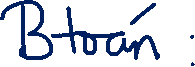 B toán :